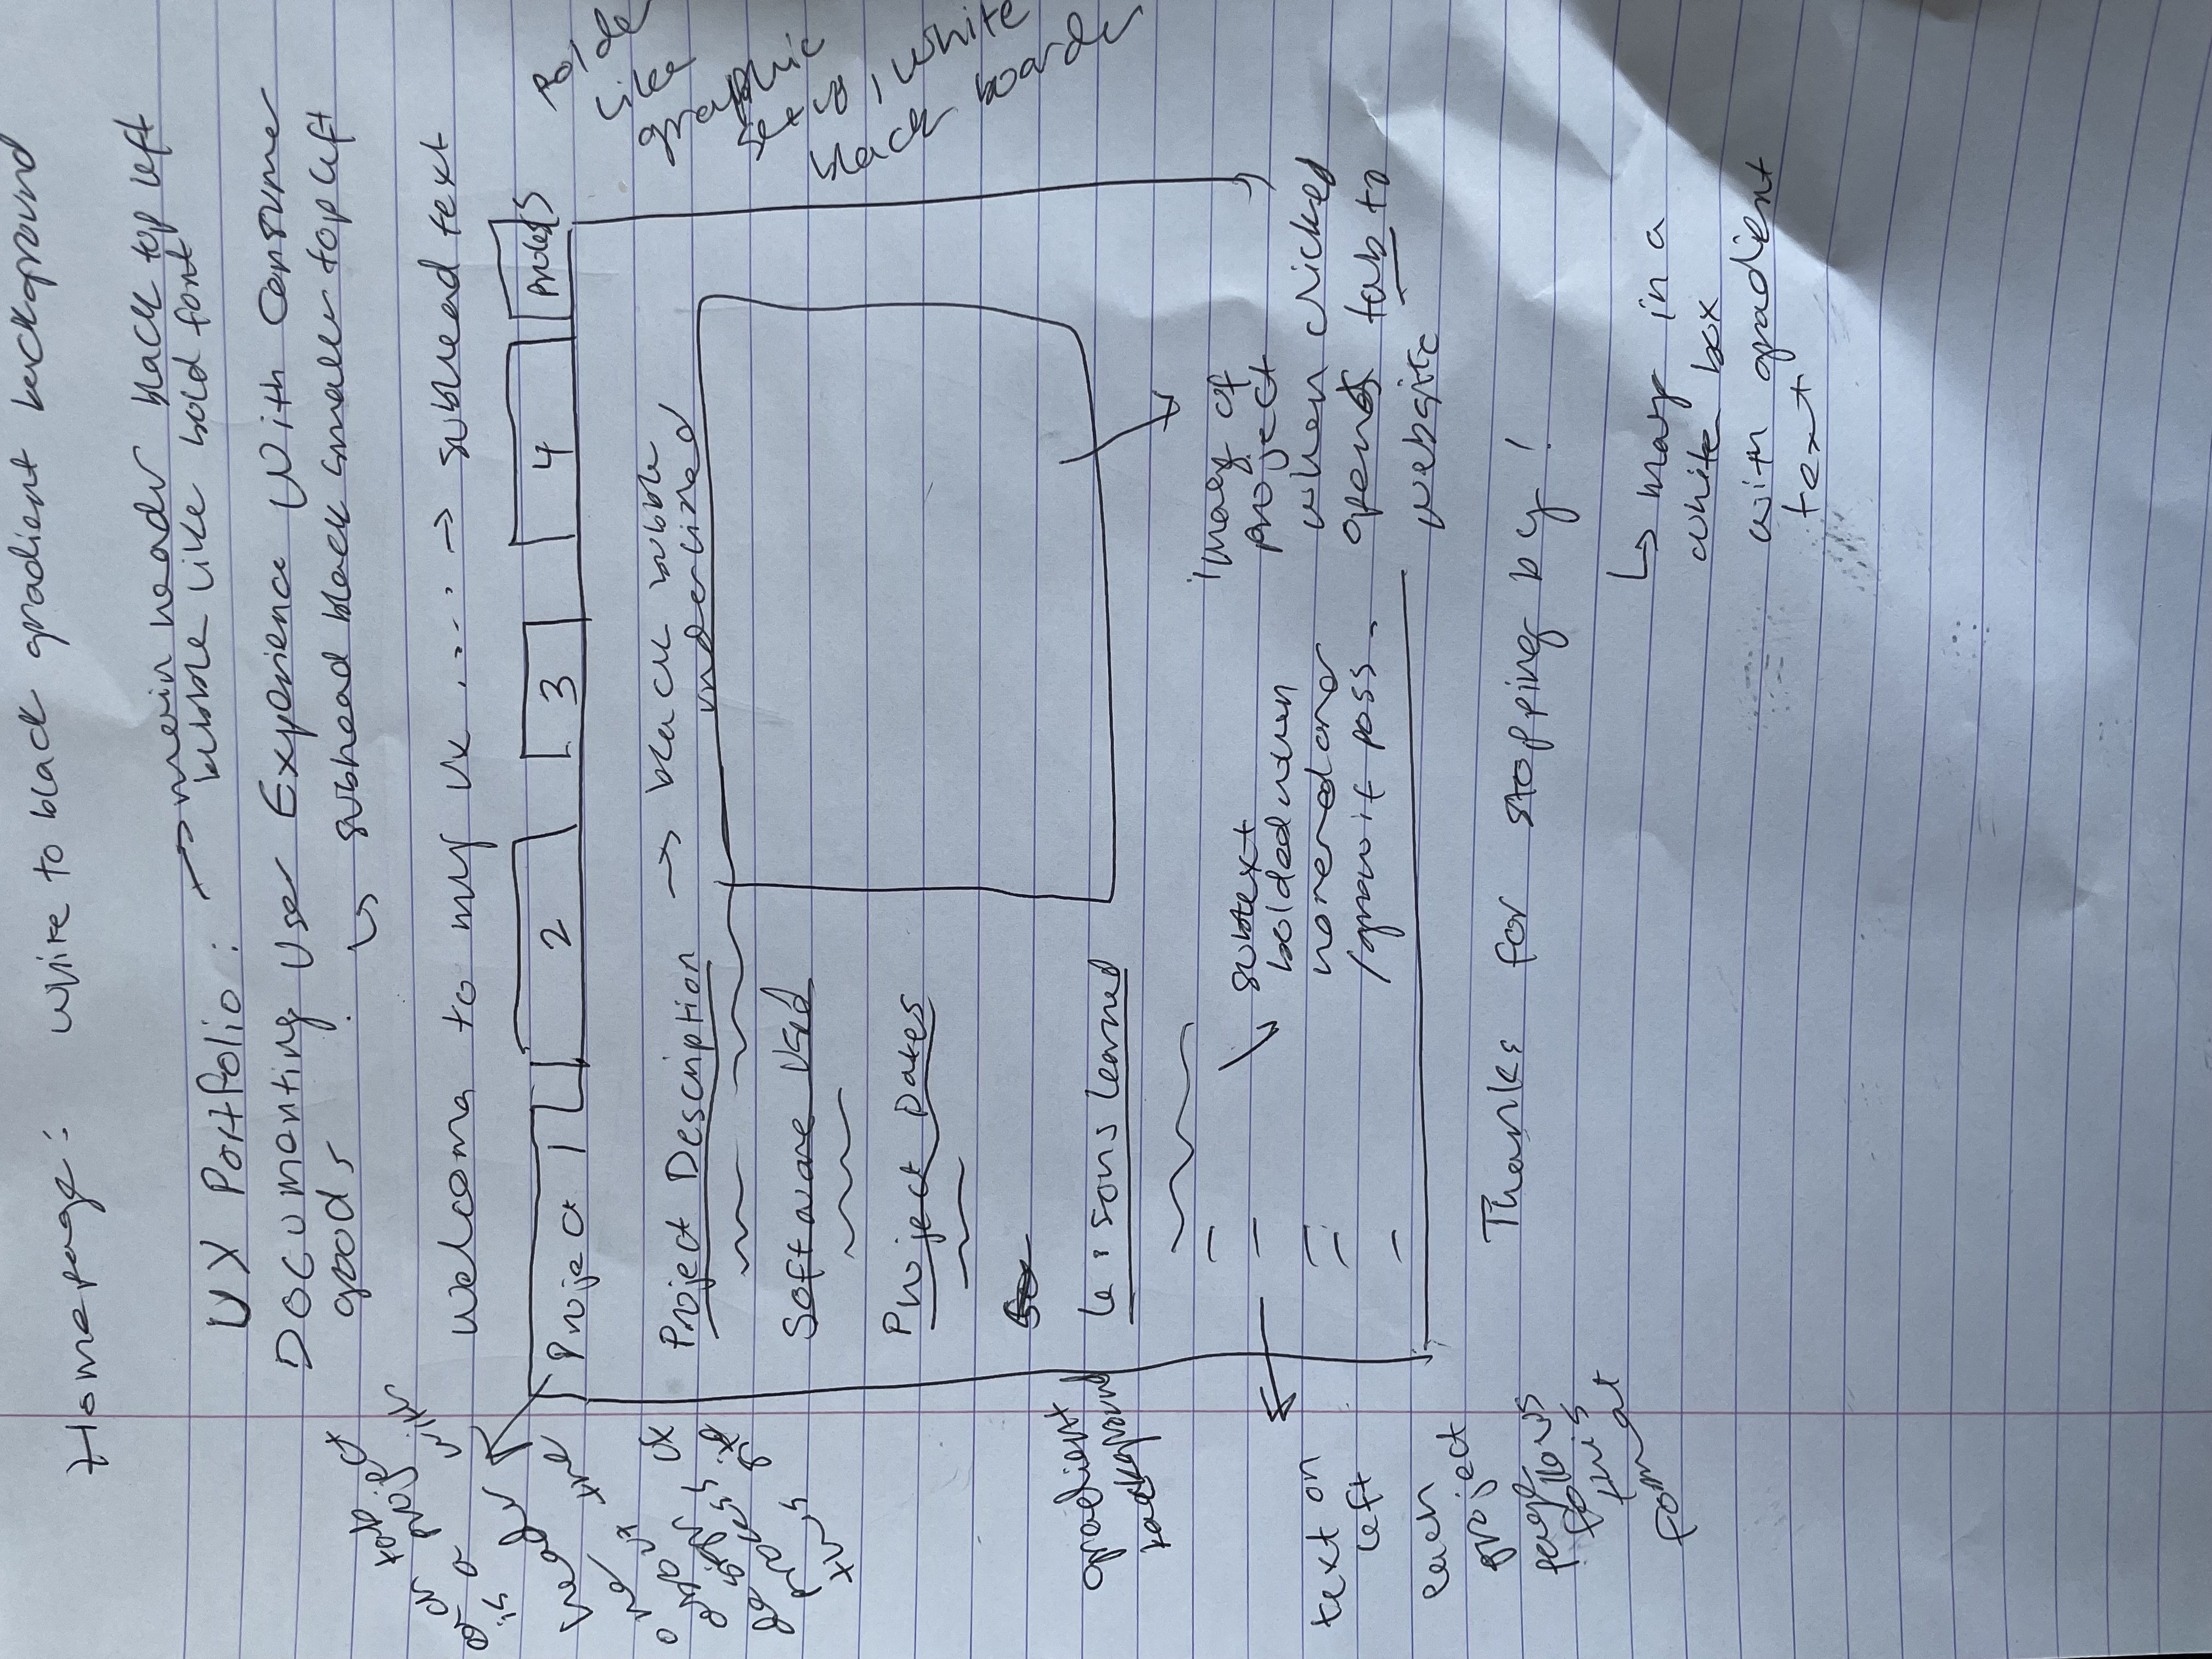 Homepage: white to black gradient background
UX Portfolio: → main header black top left
bubble like bold font
Documenting User Experience With Consumer
goods
↳ subhead black smaller top left
Welcome to my UX ..... → subhead text
each tab
is a project
header with
one
about the
design
process of
this site
Project 1 2 3 4 Process
folder
like
graphic
setup, white
black boarder
Project Description → black bubble
underlined
Software Used
Project Dates
gradient
background
Lessons learned
subtext
bolded when
hovered over
/grow if poss.
image of
project
when clicked
opens tab to
website
text on
left
each
project
page
follows
this
format
Thanks for stopping by!
↳ may in a
white box
with gradient
text